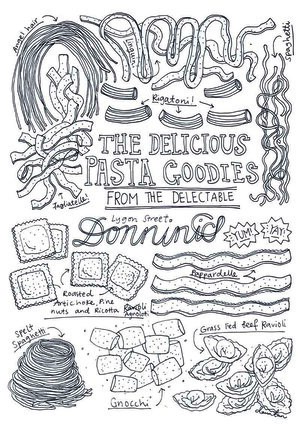 Angel hair
Spaghetti
Rigatoni!
THE DELICIOUS
PASTA GOODIES
FROM THE DELECTABLE
Tagliatelle!
Lygon Street.
Donnini's
YUM!
YAY!
Pappardelle
Roasted
Artichoke, Pine
nuts and Ricotta Ravioli
Agnoloti
Spelt
Spaghetti
Grass Fed Beef Ravioli
Gnocchi